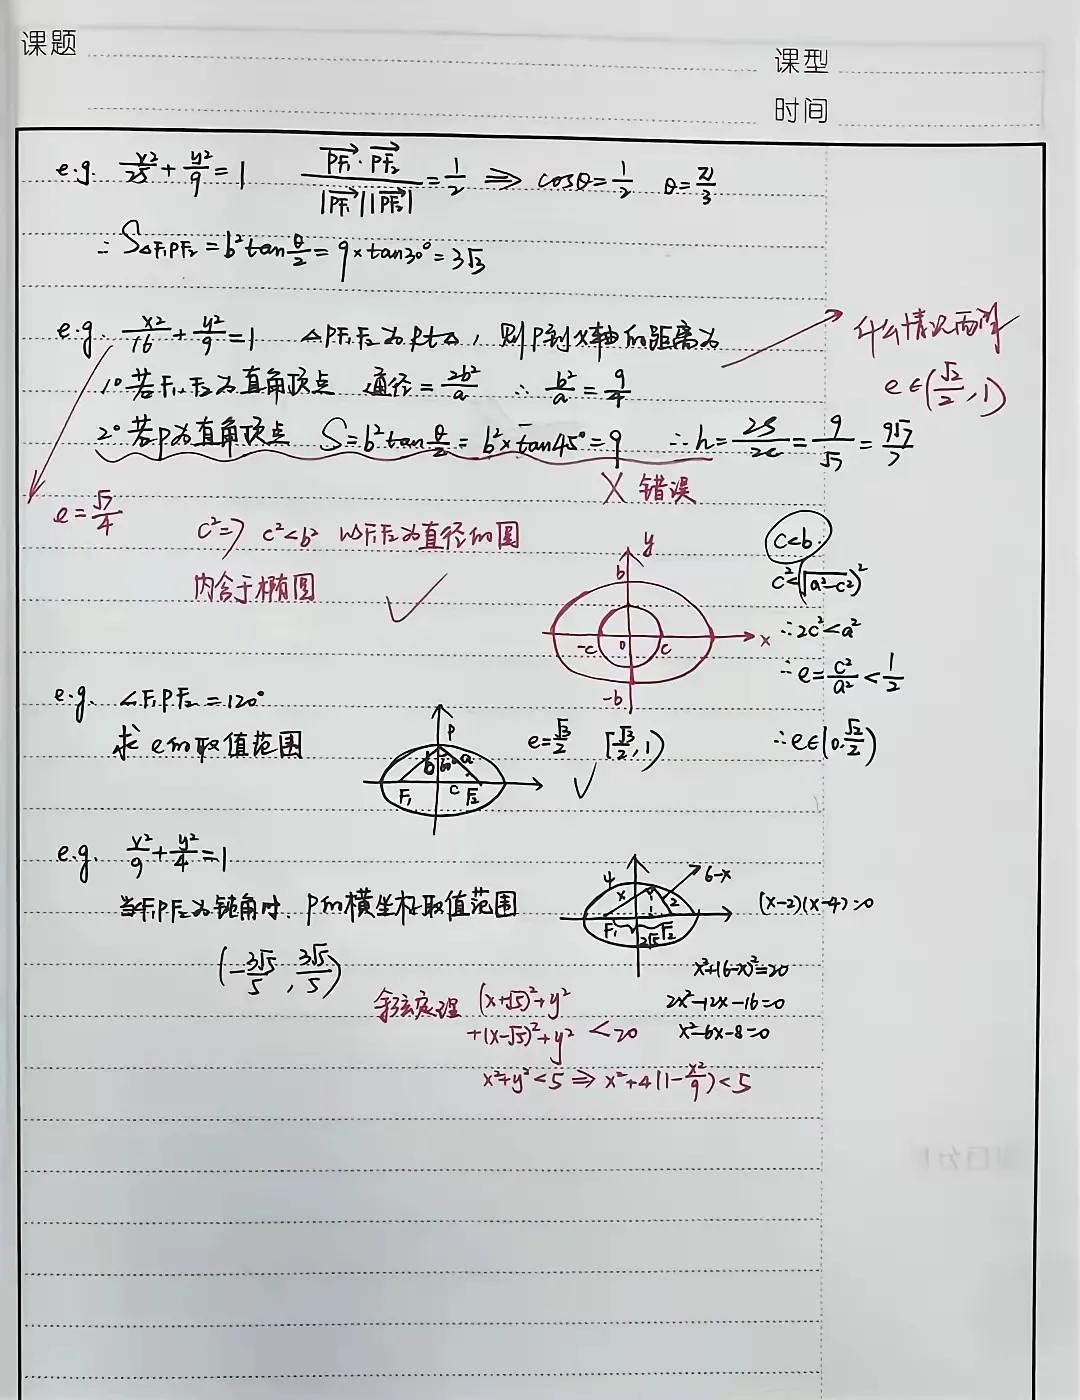 课题
课型
时间
e.g. x²/25 + y²/9 = 1 (PF₁→·PF₂→)/(|PF₁→||PF₂→|) = 1/2 ⇒ cosθ = 1/2 θ = π/3
∴ S△F₁PF₂ = b²tan θ/2 = 9×tan30° = 3√3
e.g. x²/16 + y²/9 = 1 △PF₁F₂为Rt△, 则P到x轴的距离为
什么情况两解
e∈(√2/2, 1)
1° 若F₁、F₂为直角顶点 通径 = 2b²/a ∴ b²/a = 9/4
2° 若P为直角顶点 S = b²tan θ/2 = b²×tan45° = 9 ∴ h = 2S/2c = 9/√7 = 9√7/7
✗ 错误
e = √7/4
c² = 7 c² < b² 以F₁F₂为直径的圆
内含于椭圆 ✓
y
b
-c 0 c x
-b
c<b.
c² < (√(a²-c²))²
∴ 2c² < a²
∴ e = c²/a² < 1/2
∴ e∈(0, √2/2)
e.g. ∠F₁PF₂ = 120°
求e的取值范围
P
b 60° a
F₁ c F₂
e = √3/2 [√3/2, 1) ✓
e.g. x²/9 + y²/4 = 1
当F₁PF₂为钝角时、P的横坐标取值范围
(-3√5/5, 3√5/5)
4 6-x
x 2
F₁ 2√5 F₂
(x-2)(x-4)=0
x²+(6-x)²=20
2x²-12x-16=0
x²-6x-8=0
余弦定理 (x+√5)²+y²
+(x-√5)²+y² < 20
x²+y² < 5 ⇒ x²+4(1-x²/9) < 5